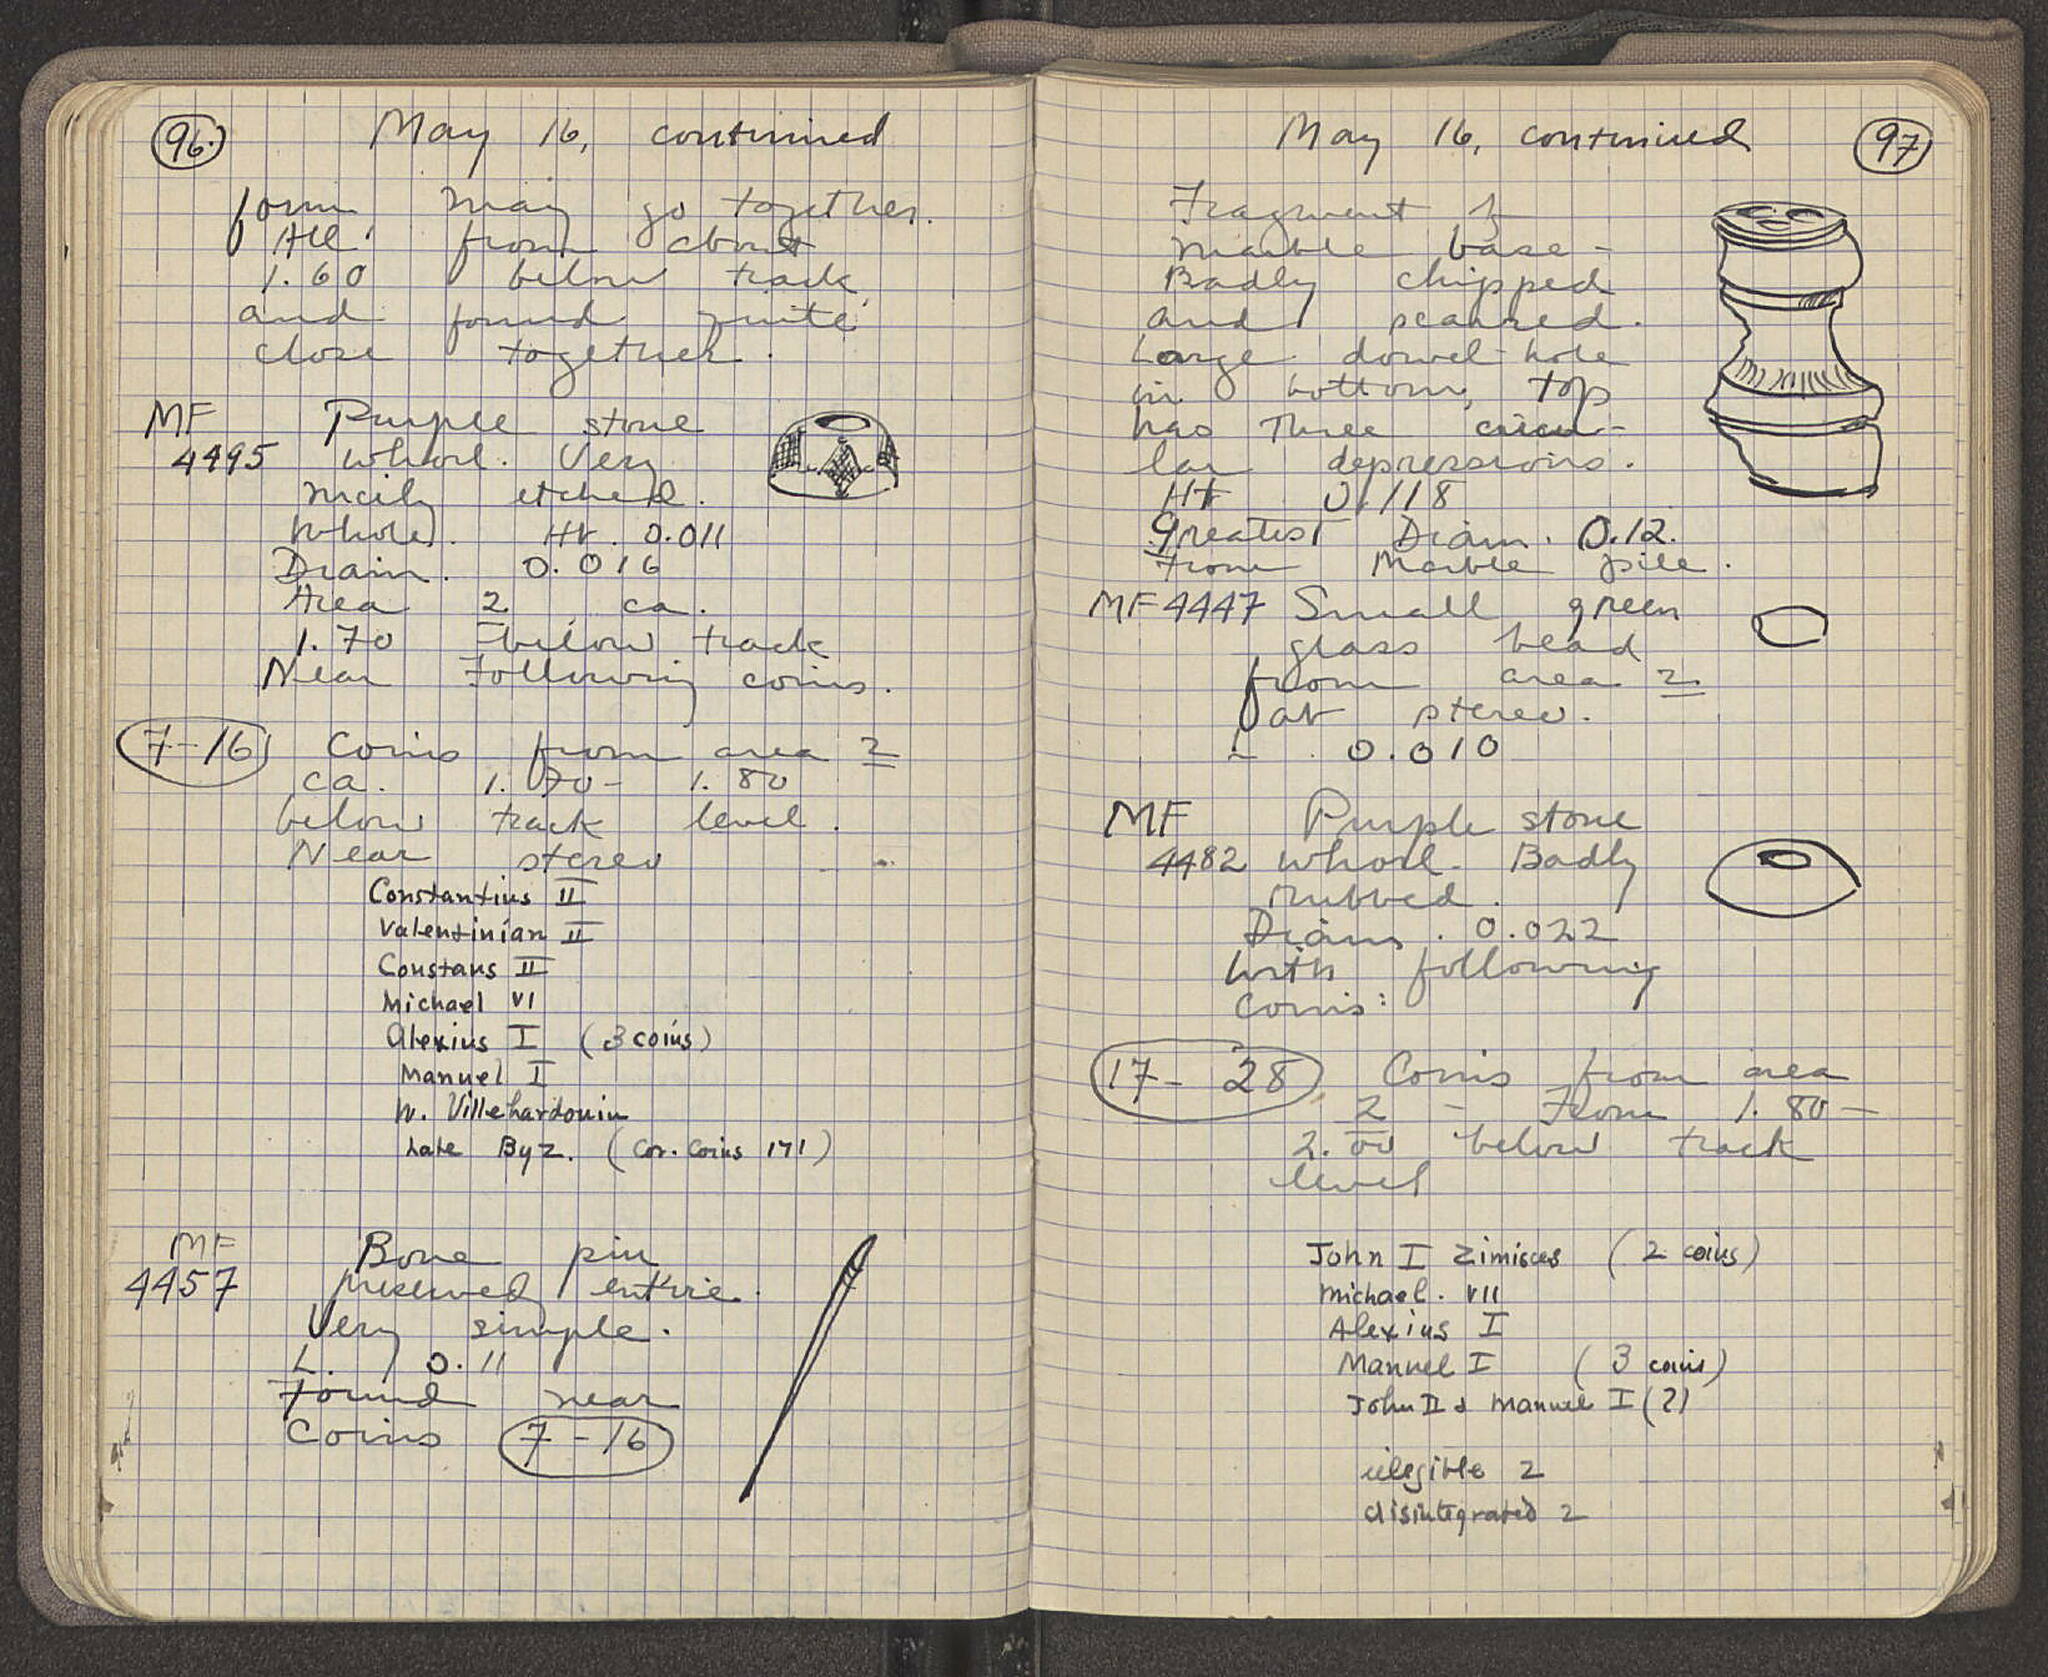 96.
May 16, continued
form, may go together.
All from about
1.60 below track,
and found quite
close together.
MF
4495
Purple stone
whorl. Very
nicely etched.
Whole. Ht. 0.011
Diam. 0.016
Area 2 ca.
1.70 below track
Near following coins.
7-16 Coins from area 2
ca. 1.70- 1.80
below track level.
Near stereo
Constantius II
Valentinian II
Constans II
Michael VI
Alexius I (3 coins)
Manuel I
W. Villehardouin
Late Byz. (Cor. Coins 171)
MF
4457
Bone pin
preserved entire.
Very simple.
L. 0.11
Found near
Coins 7-16
May 16, continued
97
Fragment of
marble base-
Badly chipped
and scarred.
Large dowel-hole
in bottom, top
has three circu-
lar depressions.
Ht 0.118
Greatest Diam. 0.12.
From Marble pile.
MF 4447 Small green
glass bead
from area 2
at stereo.
L. 0.010
MF
4482
Purple stone
whorl- Badly
rubbed.
Diam. 0.022
With following
coins:
17- 28 Coins from area
2 - From 1.80-
2.00 below track
level
John I Zimisces (2 coins)
Michael. VII
Alexius I
Manuel I (3 coins)
John II & Manuel I (?)
illegible 2
disintegrated 2